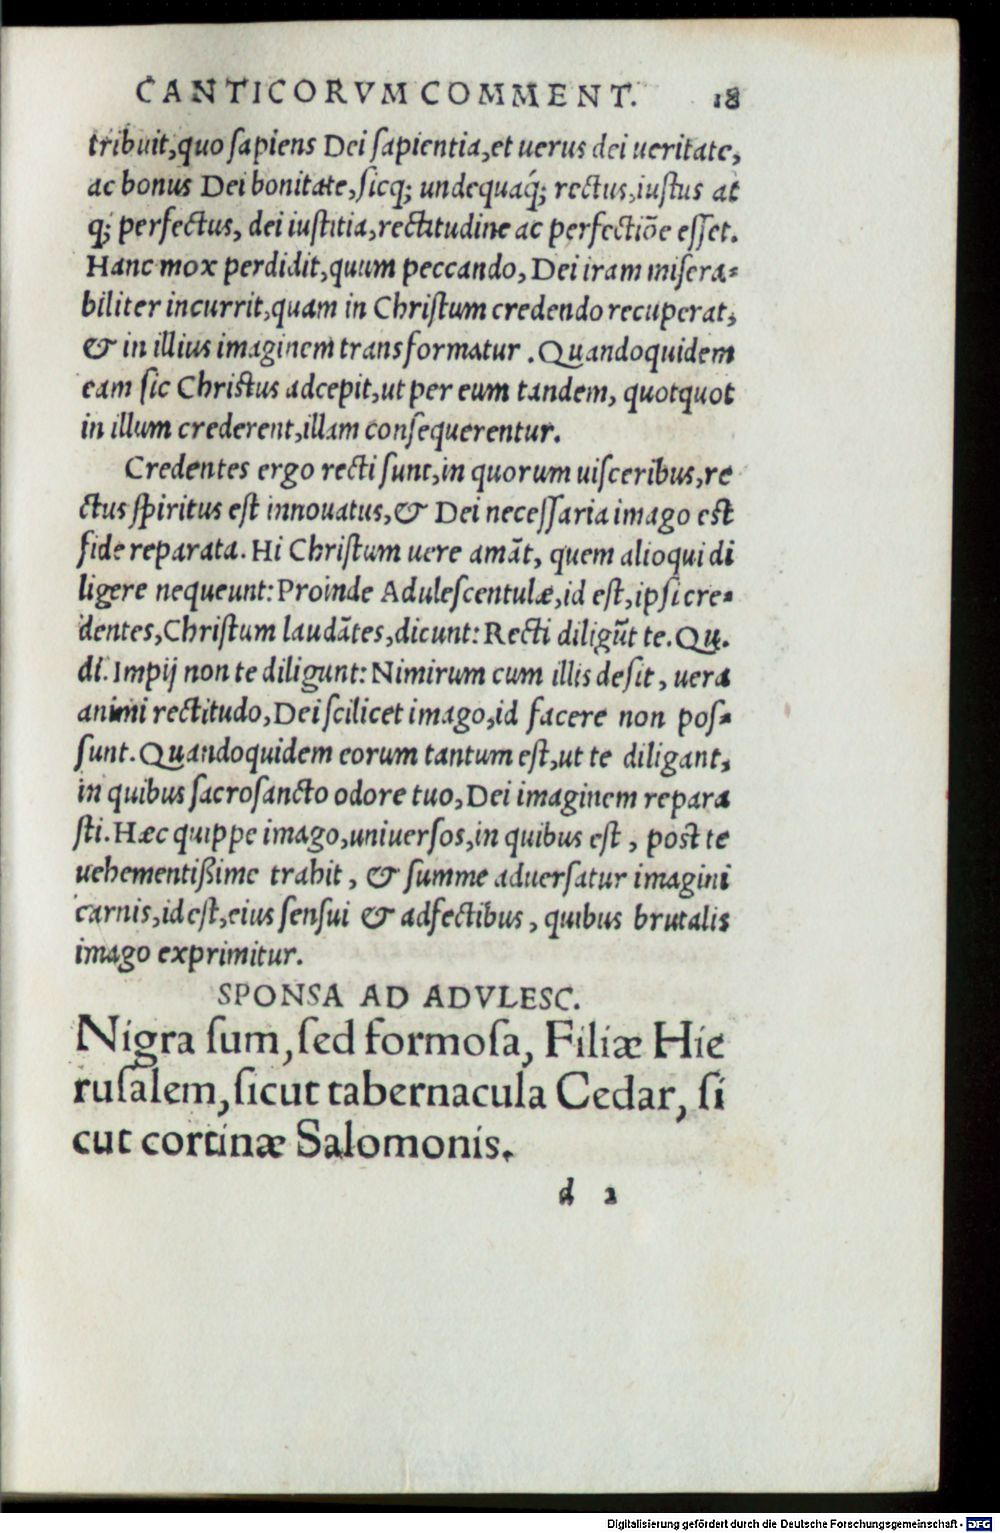 CANTICORVM COMMENT. 18
tribuit,quo ſapiens Dei ſapientia,et uerus dei ueritate,
ac bonus Dei bonitate,ſicq; undequaq́; rectus,iuſtus at
q; perfectus, dei iuſtitia,rectitudine ac perfectiōe eſſet.
Hanc mox perdidit,quum peccando, Dei iram miſera-
biliter incurrit,quam in Chriſtum credendo recuperat,
& in illius imaginem transformatur. Quandoquidem
eam ſic Chriſtus adcepit,ut per eum tandem, quotquot
in illum crederent,illam conſequerentur.
Credentes ergo recti ſunt,in quorum uiſceribus,re
ctus ſpiritus eſt innouatus,& Dei neceſſaria imago eſt
fide reparata. Hi Chriſtum uere amāt, quem alioqui di
ligere nequeunt: Proinde Aduleſcentulæ,id eſt,ipſi cre-
dentes,Chriſtum laudātes,dicunt: Recti diligūt te. Qu.
di. Impij non te diligunt: Nimirum cum illis deſit, uera
animi rectitudo,Dei ſcilicet imago,id facere non poſ-
ſunt. Quandoquidem eorum tantum eſt,ut te diligant,
in quibus ſacroſancto odore tuo,Dei imaginem repara
ſti. Hæc quippe imago,uniuerſos,in quibus eſt, poſt te
uehementißime trahit, & ſumme aduerſatur imagini
carnis,id eſt,eius ſenſui & adfectibus, quibus brutalis
imago exprimitur.
SPONSA AD ADVLESC.
Nigra ſum,ſed formoſa, Filiæ Hie
ruſalem,ſicut tabernacula Cedar, ſi
cut cortinæ Salomonis.
d 2
Digitalisierung gefördert durch die Deutsche Forschungsgemeinschaft - DFG